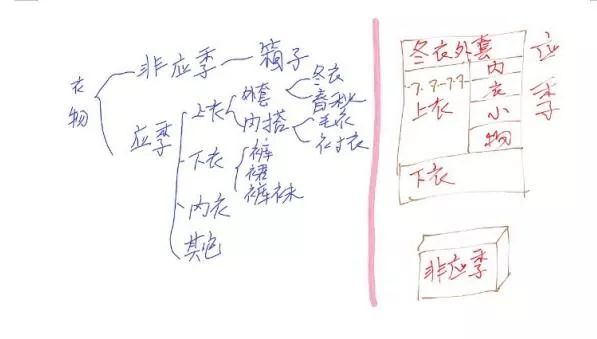 衣物
非应季
箱子
应季
上衣
外套
冬衣
春秋
内搭
毛衣
衬衣
下衣
裤
裙
裤袜
内衣
其它
冬衣外套
应季
上衣
内衣小物
下衣
非应季